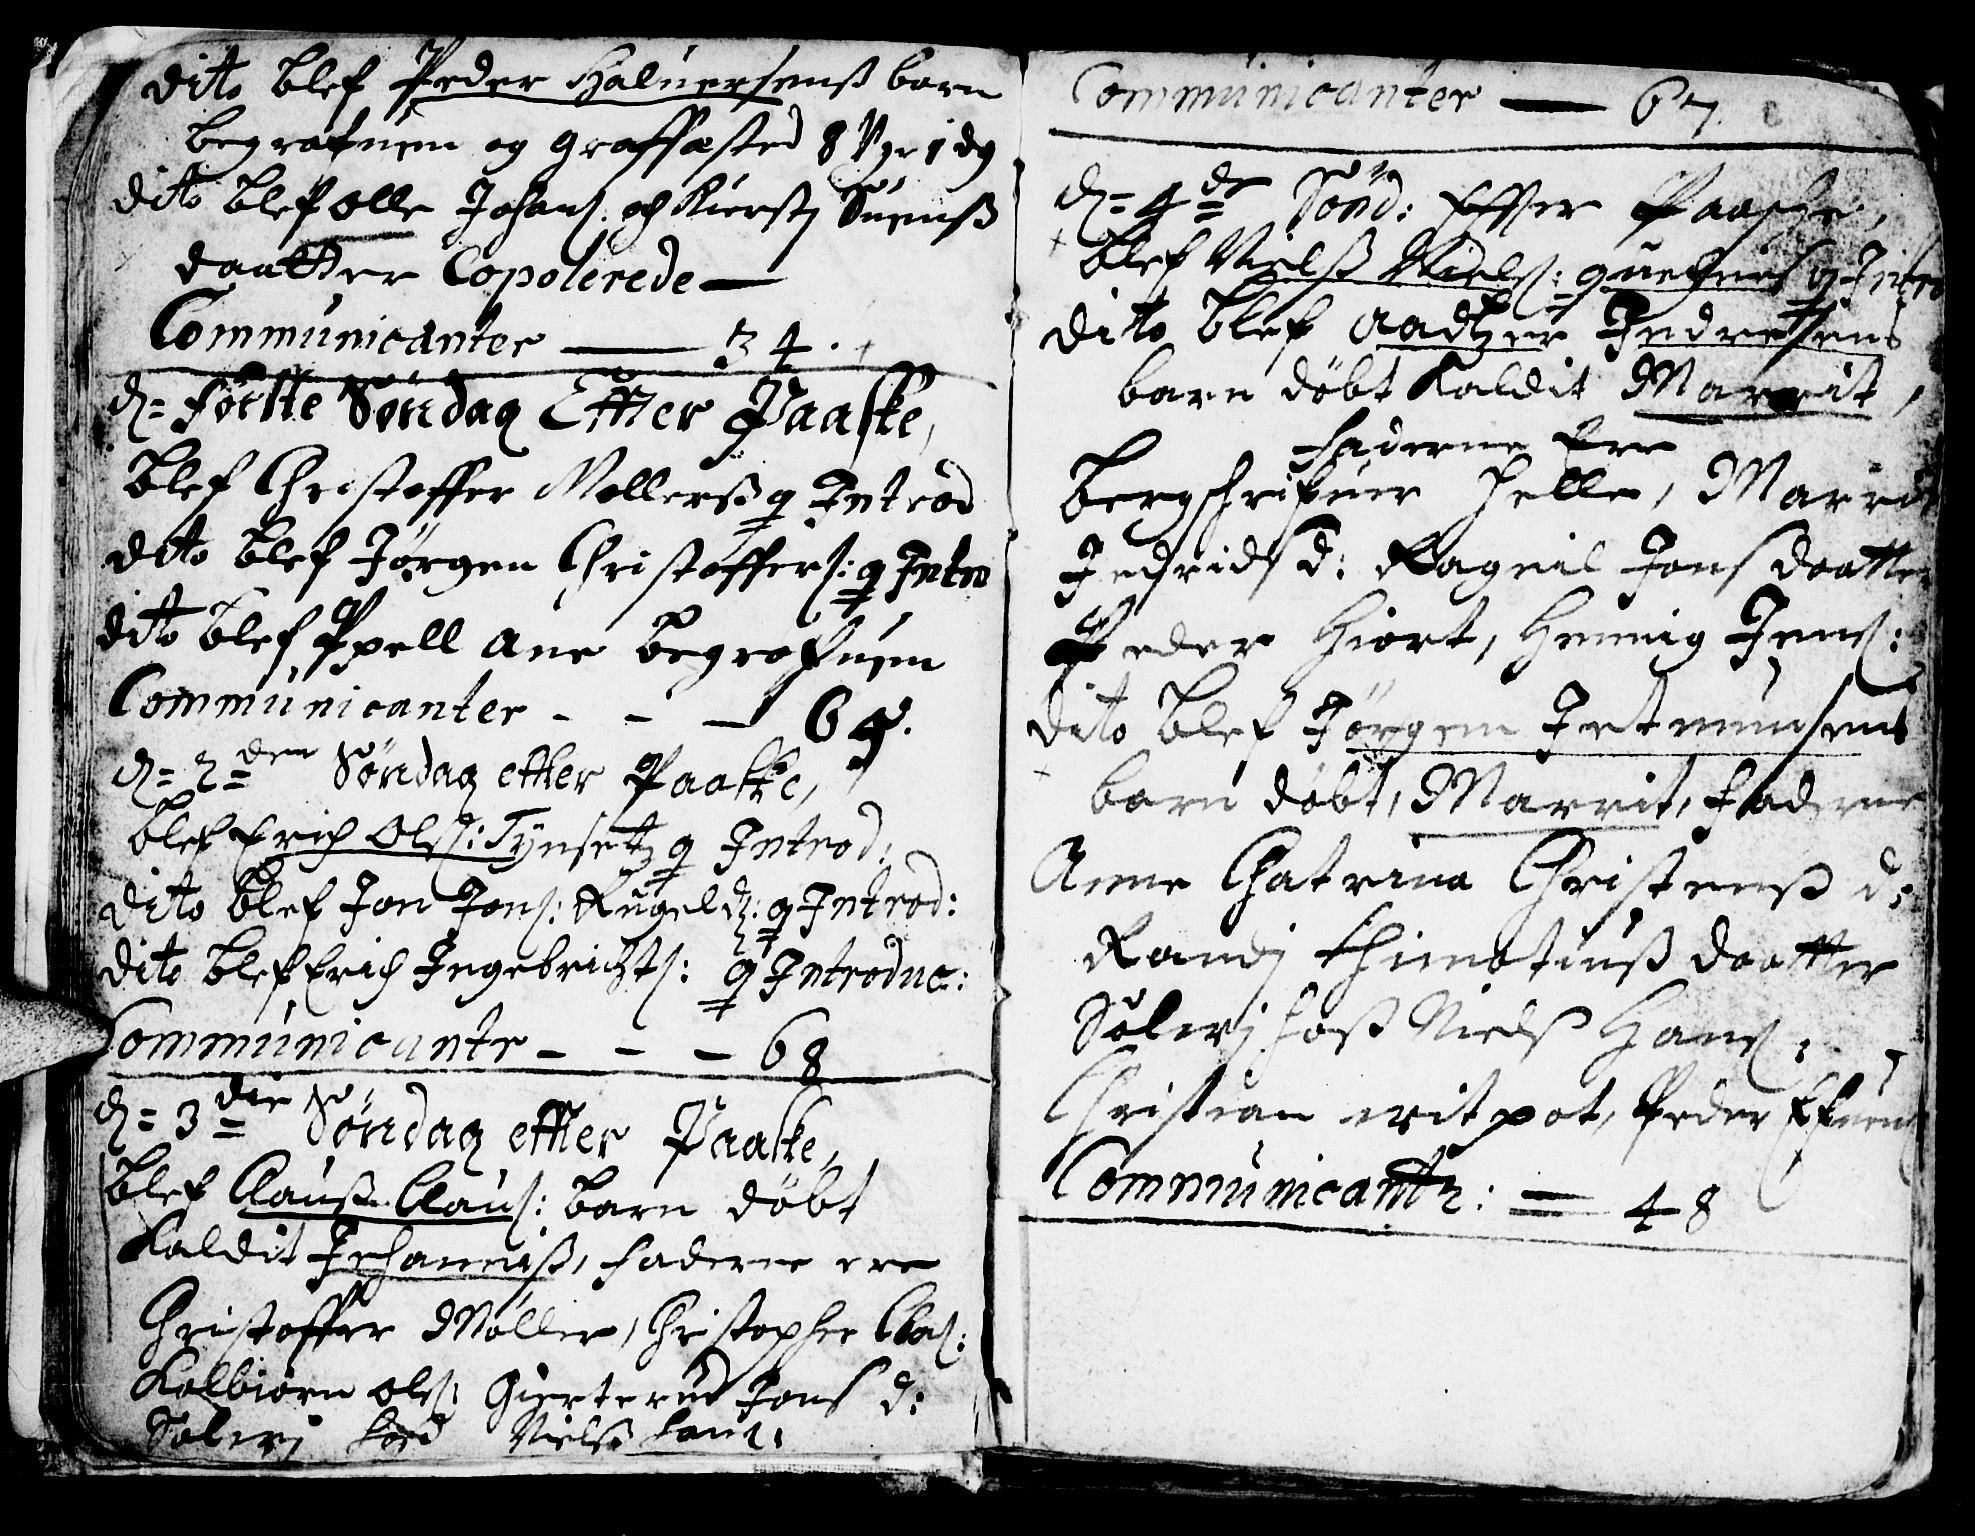 dito blef Peder Haluersenß barn
begrafuen og graffæsted 8 Vge 1 dg
dito blef olle Johans: och Kiersti Suenß
daatter Copolerede —
Communicanter — 34.
d: förste Söndag Efter Paaske,
blef Christoffer Møllerß q Introd
dito blef Jörgen Christoffers: q Intro
dito blef Ane begrafuen
Communicanter - - — 64.
d: 2den Söndag efter Paaske,
blef Erich Ols: Tÿnsetz q Introd:
dito blef Jon Jons: Rugeld: q Introd:
dito blef Erich Ingebrichts: q Introduc:
Communicante - - — 68
d: 3die Söndag efter Paaske,
blef Clauß Claus: barn döbt
Kaldit Johanniß, faderne ere
Christoffer Møller, Christopher Clas:
Kolbiörn ols: Gierterud Jons d:
Solvij hoes Nielß
Communicanter — 67.
d: 4de Sönd: Effter Paaske,
blef Nielß Niels: quefens q Intro
dito blef Indresens
barn döbt Kaldit Marrit,
faderne Ere
bergschrifuer Helle, Marrit
Ingrids d: Ragnil Jons daatter
Peder Hiort, Henning Jens:
dito blef Jörgen
barn döbt, Marrit, faderne
Anne Chatrina Christenß d:
Randj thimotiuß daatter
Solvij hoß Niels Hans:
Christian writ pot, Peder
Communicantr: = 48